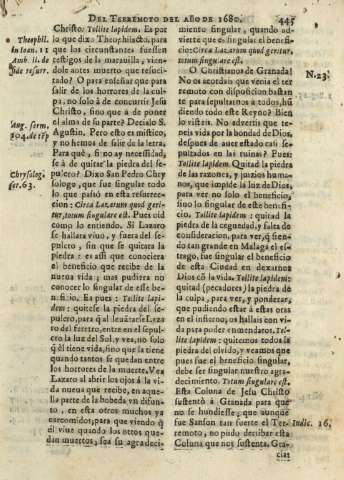 DEL TERREMOTO DEL AÑO DE 1680. 445
Christo. Tollite lapidem. Es por
lo que dixo Theophilacto, para
que los circunstantes fuessen
testigos de la marauilla, vien-
dole antes muerto que resuci-
tado? O para enseñar que para
salir de los horrores de la cul-
pa, no solo à de concurrir Jesu
Christo, sino que à de poner
el alma de su parte? Deziálo S.
Agustin. Pero esto es mistico, y
no hemos de salir de la letra.
Para què, si no ay necessidad,
se à de quitar la piedra del se-
pulcro? Dixo San Pedro Chry
sologo, que fue singular todo
lo que passò en esta resurrec-
cion: Circa Lazarum quod geri-
tur, totum singulare est. Pues oid
como lo entiendo. Si Lazaro
se hallara viuo, y fuera del se-
pulcro, sin que se quitara la
piedra: es assi que conociera
el beneficio que recibe de la
nueua vida; mas pudiera no
conocer lo singular de este be-
neficio. Ea pues: Tollite lapi-
dem: quitese la piedra del se-
pulcro, para q̃ al leuãtarse Laza
ro del feretro, entre en el sepul-
cro la luz del Sol, y vea, no solo
q̃ èl tiene vida, sino que la tiene
quando tantos se quedan entre
los horrores de la muerte. Vea
Lazaro al abrir los ojos à la vi-
da nueua que recibe, en aque-
lla parte de la bobeda vn difun-
to, en esta otros muchos ya
carcomidos; para que viendo q̃
èl viue quando los otros que-
dan muertos, sea su agradeci-
Theophil.
in Ioan. 11
Amb. li. de
fide resurr.
Aug. serm.
104. de tẽp
Chrysolog.
ser. 63.
miento singular, quando ad-
uierte que es singular el benefi-
cio: Circa Lazarum quod geritur,
totum singulare est.
O Christianos de Granada!
No os acordais que venia el ter
remoto con disposicion bastan
te para sepultarnos à todos, hũ
diendo todo este Reyno? Bien
lo visteis. No aduertis que te-
neis vida por la bondad de Dios,
despues de auer estado casi se-
pultados en las ruinas? Pues
Tollite lapidem. Quitad la piedra
de las razones, y juizios huma-
nos, que impide la luz de Dios,
para ver no solo el beneficio,
sino lo singular del beneficio.
Tollite lapidem: quitad la pie-
dra de la ceguedad, y falta de
consideracion, para ver, q̃ sien-
do tan grande en Malaga el es-
trago, fue singular el beneficio
de esta Ciudad en dexarnos
Dios cõ la vida. Tollite lapidem:
quitad (pecadores) la piedra de
la culpa, para ver, y ponderar,
que pudiendo estar à estas oras
en el infierno, os hallais con vi-
da para poder enmendaros. Tol-
lite lapidem: quitemos todos la
piedra del oluido, y veamos que
pues fue el beneficio singular,
debe ser singular nuestro agra-
decimiento. Totum singulare est.
Esta Coluna de Jesu Christo
sustentò à Granada para que
no se hundiesse; que aunque
fue Sanson tan fuerte el Ter-
remoto, no pudo derribar esta
Coluna que nos sustenta. Gra-
cias
N. 23.
Iudic. 16.